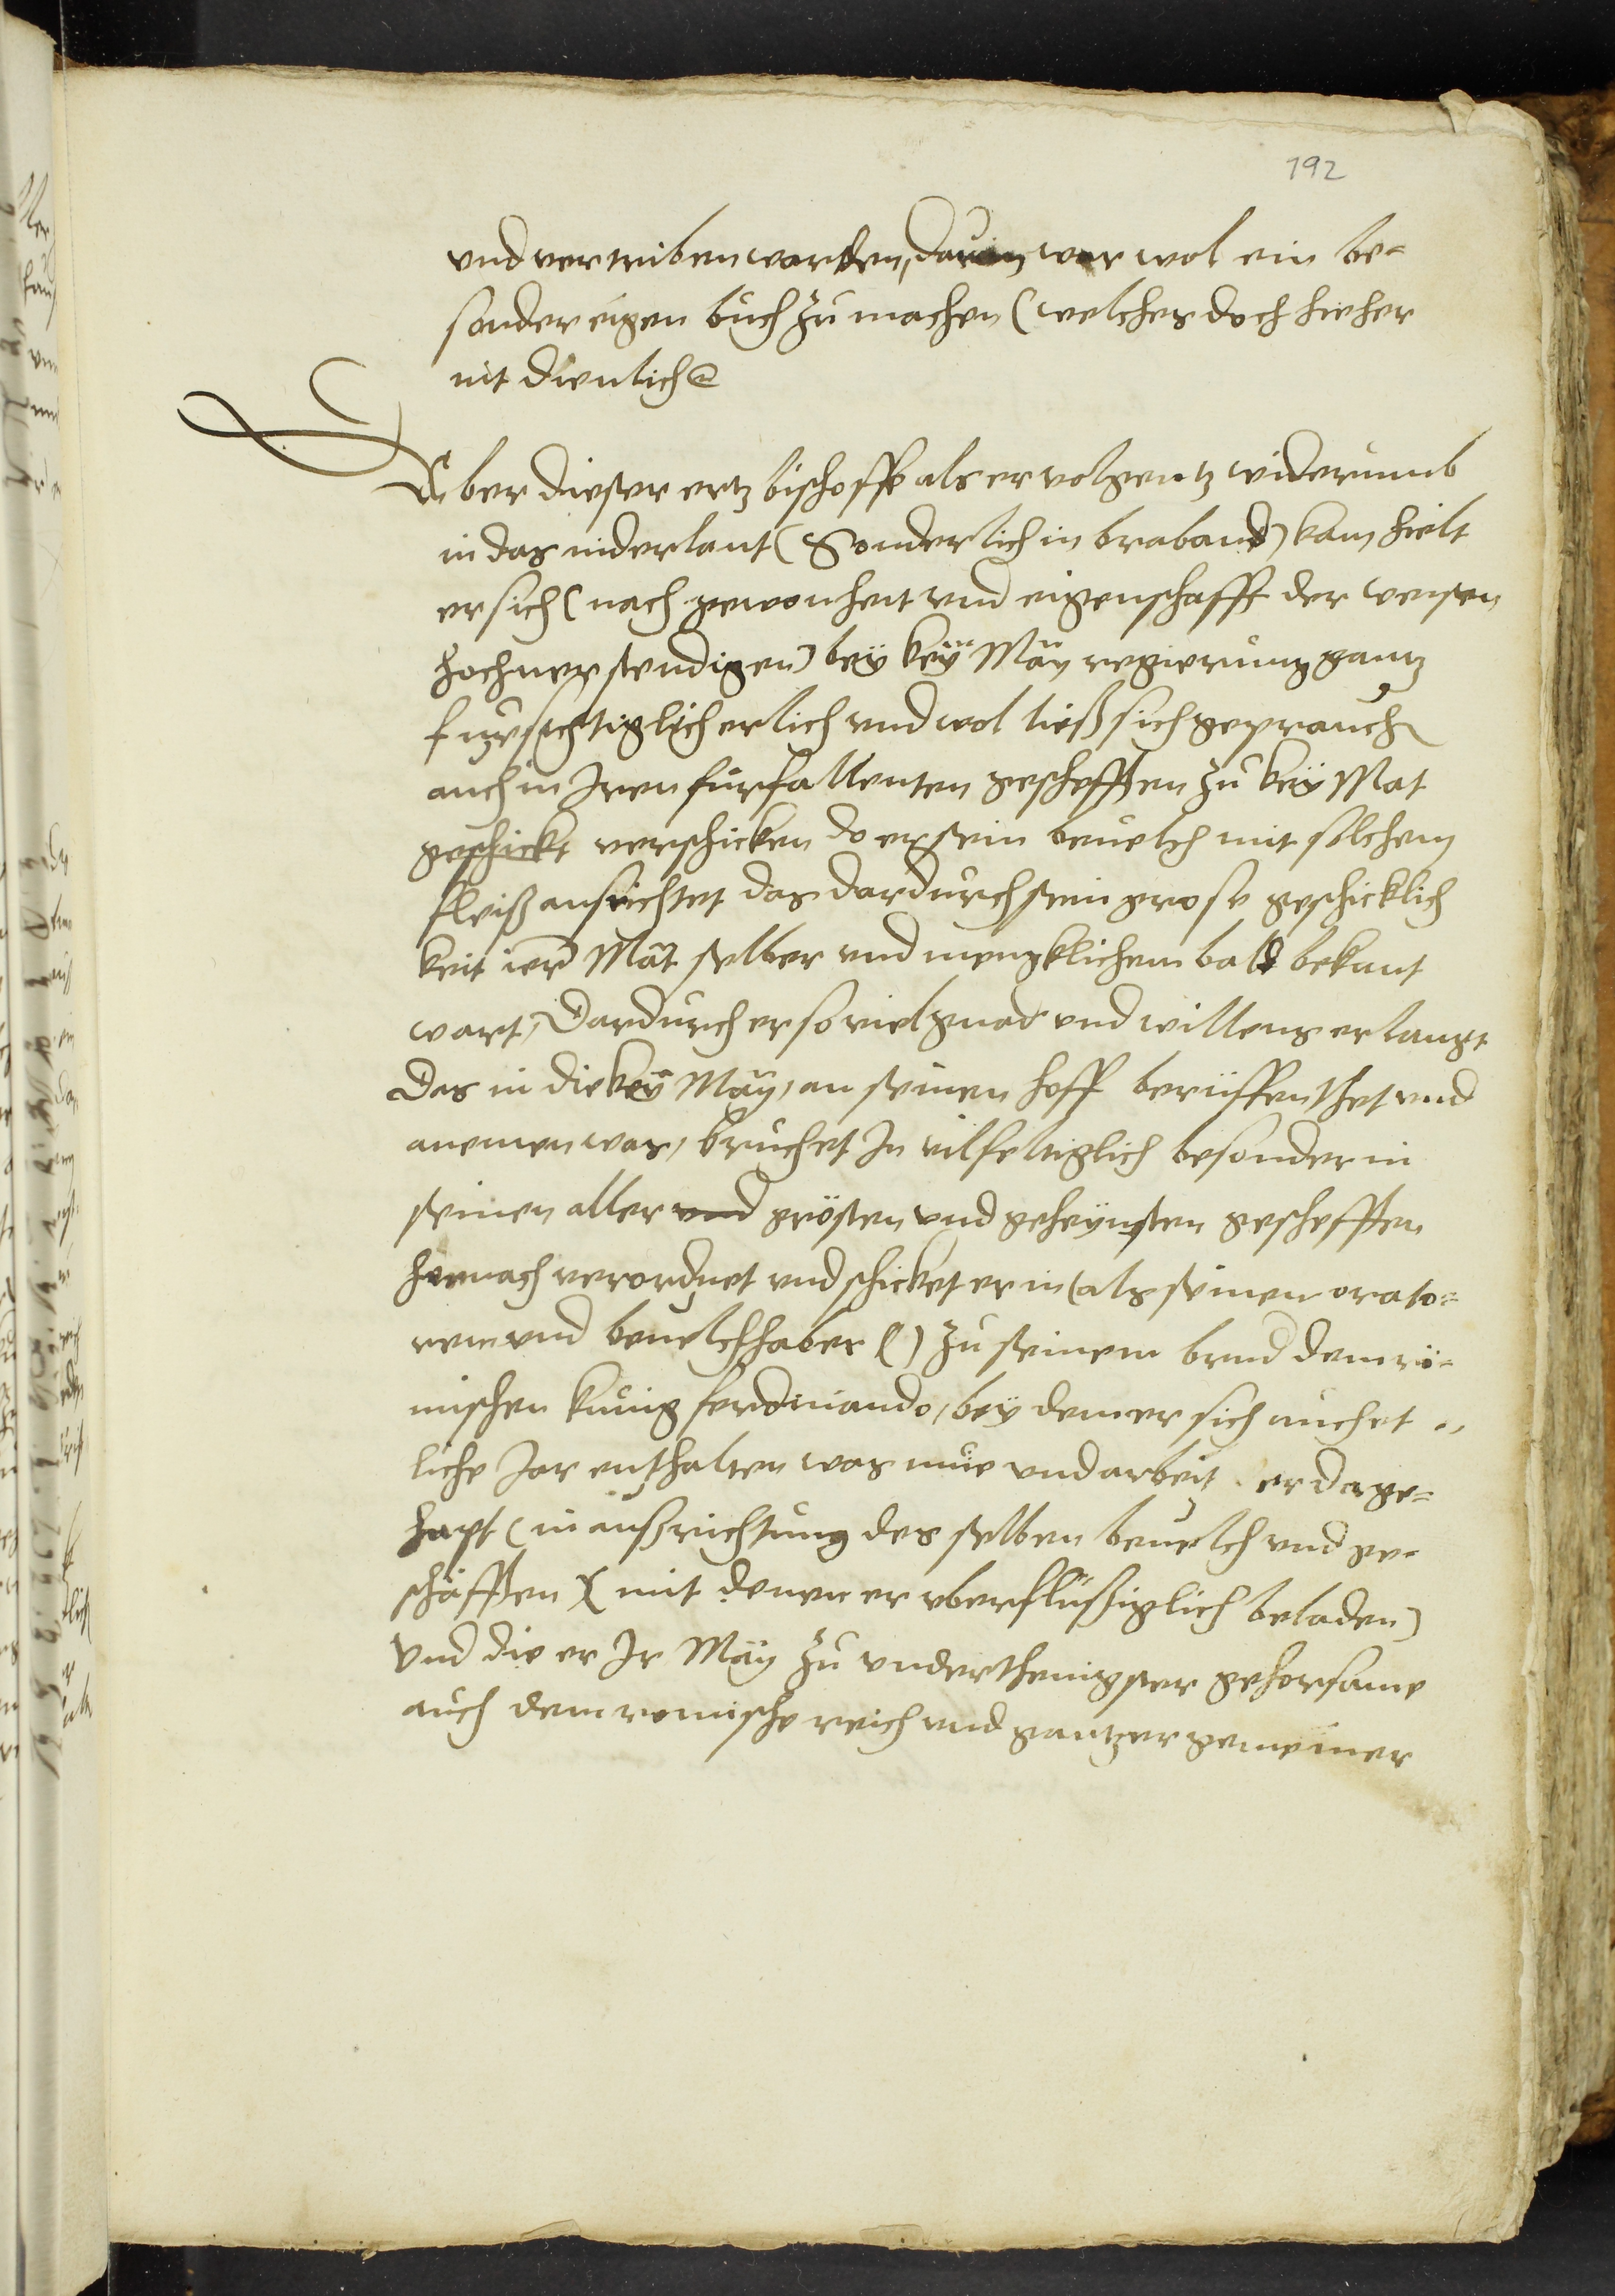 192
und vertriben warden, darin wer wol ein be-
sonder eigen buch zu machen (welches doch hieher
nit dienlich
Aber dieser ertz bischoffe als er volgentz widerumb
in das niderlant (Sonderlich in braband) kam hielt
er sich (nach gewonheit und eigenschafft der weisen
hochverstendigen) bey key May regierung gantz
fursichtiglich erlich und wol ließ sich geprauch
auch in Iren furfallenten gescheften zu key Mat
geschickt verschicken do er sein beuelch mit solchem
fleiß ausrichtet das dardurch sein grose geschicklich
keit irer Mat selber und mengklichem bald bekant
wart, Dardurch er so viel gnad und willens erlangt
Das in die key May, an seinen hoff berüffen thet und
anemen was, bruchet In vilfeltiglich besonder in
seinen aller und grösten und geheymsten geschefften
hernach verordnet und schicket er in (als seinen orato-
rem und beuelchhaber () zu seinem brud dem rö-
mischen kunig ferdinando, bey dem er sich auch et
liche Jar enthalten was müe und arbeit er da ge-
hapt (in außrichtung des selben beuelch und ge-
schäfften )( mit denen er uberflüßiglich beladen)
Und die er Ir May zu underthenigster gehorsame
auch dem romische reich und gantzer gemeiner